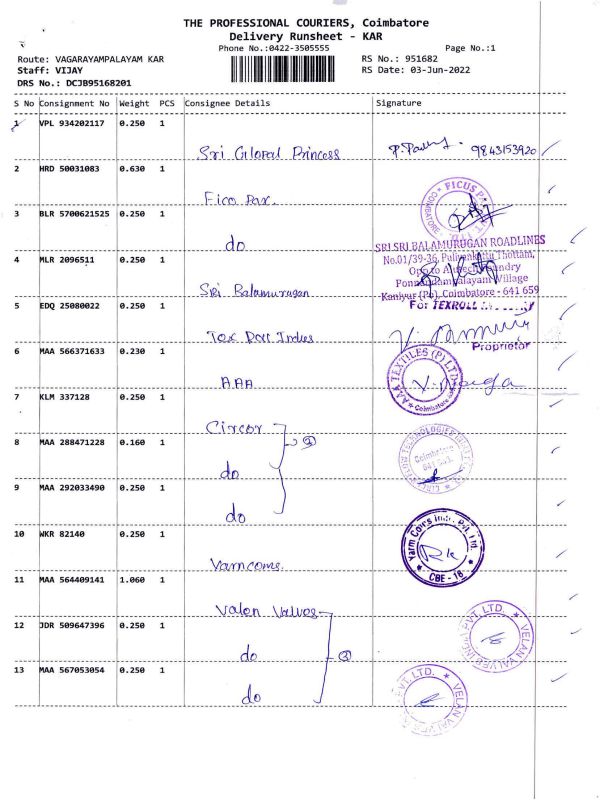 THE PROFESSIONAL COURIERS, Coimbatore
Delivery Runsheet - KAR
Phone No.:0422-3505555
Page No.:1
Route: VAGARAYAMPALAYAM KAR
RS No.: 951682
Staff: VIJAY
RS Date: 03-Jun-2022
DRS No.: DCJB95168201
S No Consignment No Weight PCS Consignee Details Signature
1 VPL 934202117 0.250 1
Sri Gloral Princess 9843153920
2 HRD 50031083 0.630 1
Fico Pax.
FICUS COIMBATORE
3 BLR 5700621525 0.250 1
do
SRI SRI BALAMURUGAN ROADLINES
4 MLR 2096511 0.250 1
No.01/39-36, Pulivankattu Thottam,
Sri Balamurugan
Village
Kaniyur (Po), Coimbatore - 641 659
5 EDQ 25080022 0.250 1
For
Proprietor
6 MAA 566371633 0.230 1
AAA
AAA TEXTILES (P) LTD Coimbatore
7 KLM 337128 0.250 1
Circor
8 MAA 288471228 0.160 1
do
Coimbatore
9 MAA 292033490 0.250 1
do
10 WKR 82140 0.250 1
Yarncoms.
Yarn Coms India Pvt. Ltd. CBE - 18
11 MAA 564409141 1.060 1
Valon Valves
12 JDR 509647396 0.250 1
do ③
VELAN VALVES INDIA PVT. LTD.
13 MAA 567053054 0.250 1
do
VELAN VALVES PVT. LTD.